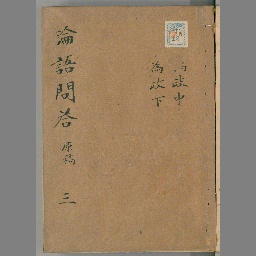 論語問答 原稿 三
為政中
為政下